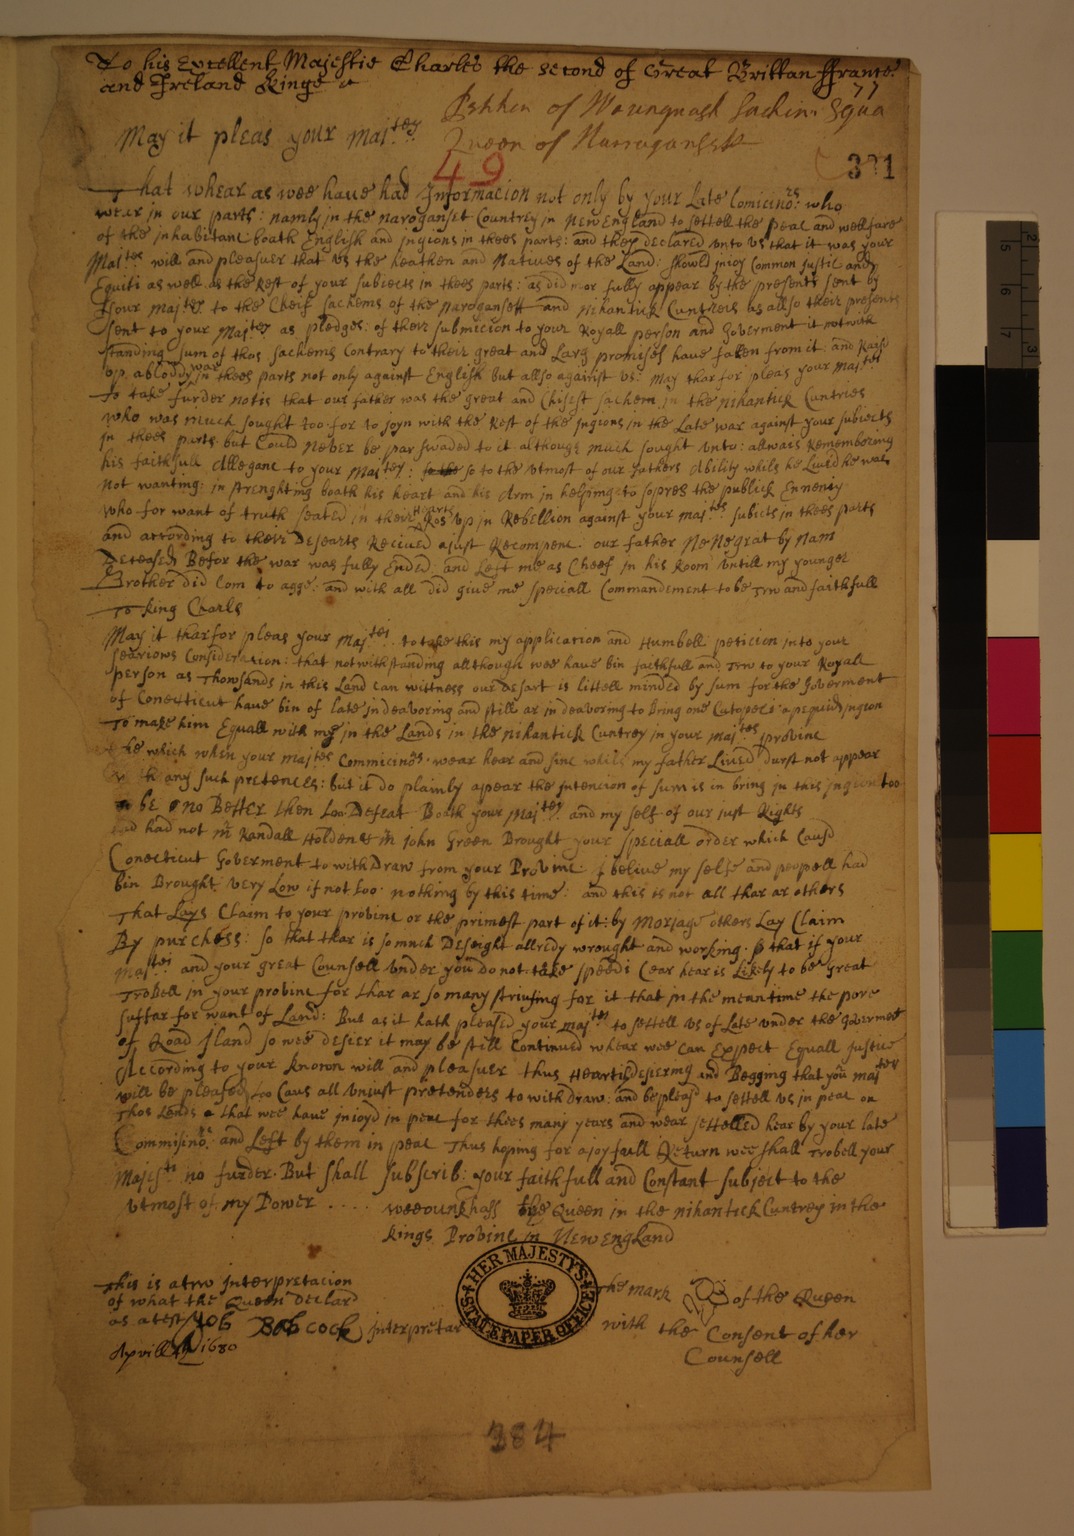 To his Excellent Majestie Charles the second of Great Brittan ffrance
and Ireland Kinge &
77
of Sachim Squa
May it pleas your Maj:tey
Queen of Narroganset
49
391
That whear as wee have had Informacion not only by your Late Comicinors: who
wear in our parts: namly in the naroganset Countrey in New England to settell the peac and wellfare
of the inhabitanc boath English and ingions in thees parts: and they declared unto us that it was your
Majtes will and pleasuer that us the heathen and Natives of the Land: should injoy Common Justic and
Equiti as well as the Rest of your subiects in thees parts: as did mor fully appear by the presents sent by
your Majtes. to the Cheif sachems of the naroganset and nihantick Cuntreis as allso their presents
sent to your Majtey as pledges: of their submicion to your Royall person and Goverment it notwith
standing sum of thos sachems Contrary to their great and Larg promises have falen from it: and Rais
up a bloddy war in thees parts not only against English but allso against us: may tharfor pleas your majtes
to take furder notis that our father was the great and Chifest sachem in the nihantick Cuntries
who was much sought too for to joyn with the Rest of the ingions in the Late war against your subiects
in thees parts but Could never be parswaded to it although much sought unto: allwais Remembering
his faithfull Alleganc to your majtey: so to the utmost of our fathers ability whils he Lived he was
not wanting: in strenghting boath his heart and his Arm in helping to sopres the publick Ennemy
who for want of truth seated in their Hearts Ros up in Rebellion against your majtes subicts in thees parts
and according to their Desearts Recived a just Recompenc. our father NeNegrat by nam
Deceased Befor the war was fully Ended, and Left me as Cheef in his Room untill my younger
Brother did Com to agge: and with all did give me speciall Commandement to be Trw and faithfull
To King Charls
May it tharfor pleas your Majtes to take this my application and Humbell peticion into your
searious Consideracion: that notwithstanding allthough wee have bin faithfull and Trw to your Royall
person as Thowsands in this Land can wittness our Desart is littell minded by sum for the Goverment
of Conecticut have bin of late indeavoring and still ar indeavoring to bring one Catopeci a pequid ingion
To make him Equall with me in the Lands in the nihantick Cuntrey in your majtes provinc
he which when your majtes Commicinors wear hear and sinc whils my father Lived durst not appear
with any such pretences: but it do plainly apear the intencion of sum is in bring in this ingion too
be no Better then too Defeat Boath your Majtey and my self of our just Rights
and had not mr Randall Holden & mr john Green Brought your speciall order which Causd
Conecticut Goverment to withDraw from your Provinc I belive my selfe and peopell had
bin Brought very Low if not too nothing by this time: and this is not all thar ar others
That Lays Claim to your provinc or the primest part of it: by Morgag others Lay Claim
By purchess: so that thar is so much Deseight allredy wrought and working. that if your
majtei and your great Counsell under you do not take speedi Cear hear is Likely to be great
TroBell in your provinc for thar ar so many striufing for it that in the meantime the pore
suffar for want of Land: But as it hath pleased your majtes to settell us of Late under the Goverment
of Road Iland so wee desier it may be still Continued whear wee Can Expect Equall justice
According to your known will and pleasuer thus Heartily desiering and Begging that you majtes
will be pleased too Caus all uniust pretenders to withdraw: and be pleasd to settell us in peac on
Thos Lands that wee have injoyd in peac for thees many years and wear settelled hear by your late
Commisinors and Left by them in peac Thus hoping for a joyfull Return wee shall Trobell your
Majistt no furder. But shall subscrib: your faithfull and Constant subject to the
utmost of my Power .... weeounkhass the Queen in the nihantick Cuntrey in the
Kings Provinc in New England
This is a trw interpretacion
of what the Queen Declard
as atest Job Babcock interpretar
Aprill 1680
HER MAJESTY'S STATE PAPER OFFICE
The mark of the Queen
with the Consent of her
Counsell
384